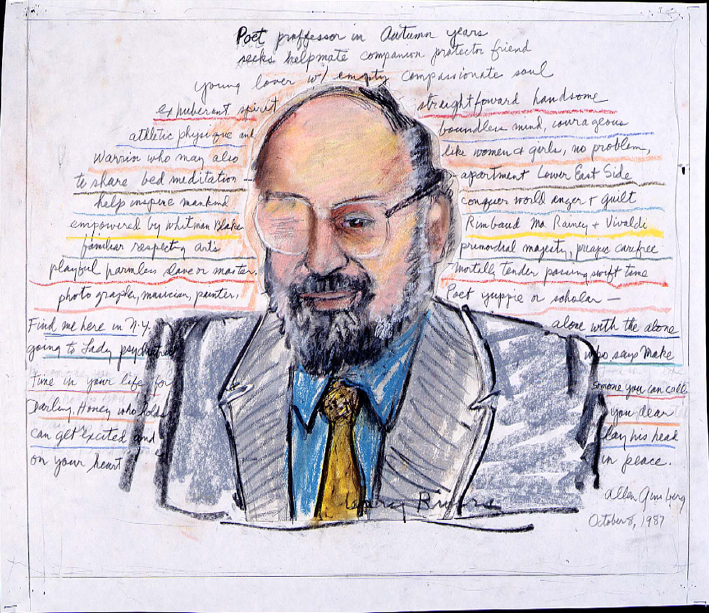 Poet proffessor in Autumn years
seeks helpmate companion protector friend
young lover w/ empty compassionate soul
exhuberant spirit straightforward handsome
athletic physique and boundless mind, courageous
Warrior who may also like women & girls, no problem,
to share bed meditation — apartment Lower East Side
help inspire mankind conquer world anger & guilt
empowered by Whitman Blake Rimbaud Ma Rainey & Vivaldi
familiar respecting arts primordial majesty, carefree
playful harmless slave or master. mortally tender passing swift time
photographer, musician, painter. Poet yuppie or scholar —
Find me here in N.Y. alone with the alone
going to Lady who says Make
time in your life for someone you can call
Darling, Honey who holds you dear
can get excited and lay his head
on your heart in peace.
Allen Ginsberg
October 8, 1987
Larry Rivers